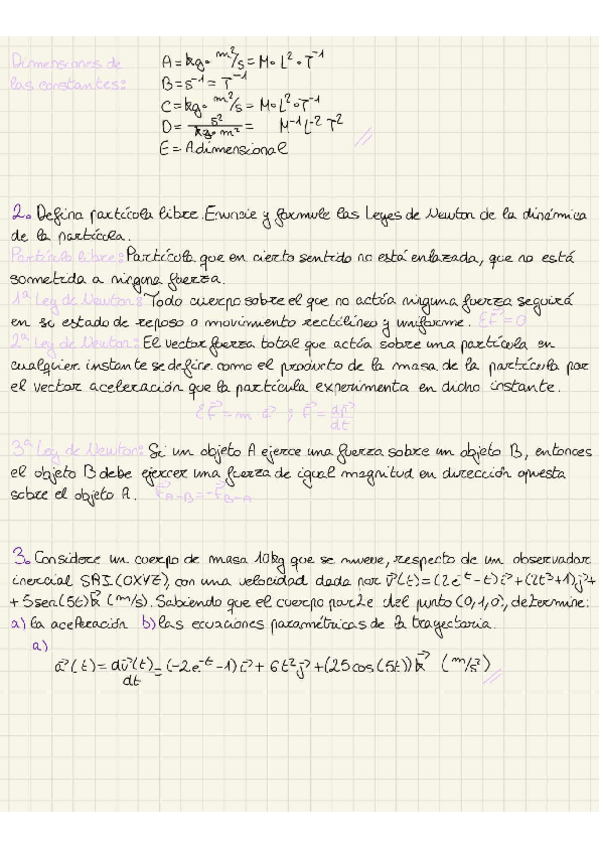 Dimensiones de las constantes:
A = kg · m²/s = M · L² · T⁻¹
B = s⁻¹ = T⁻¹
C = kg · m²/s = M · L² · T⁻¹
D = s²/(kg · m²) = M⁻¹ L⁻² T²
E = Adimensional
2. Defina partícula libre. Enuncie y formule las Leyes de Newton de la dinámica
de la partícula.
Partícula libre: Partícula que en cierto sentido no está enlazada, que no está
sometida a ninguna fuerza.
1ª Ley de Newton: Todo cuerpo sobre el que no actúa ninguna fuerza seguirá
en su estado de reposo o movimiento rectilíneo y uniforme. ΣF⃗ = 0
2ª Ley de Newton: El vector fuerza total que actúa sobre una partícula en
cualquier instante se define como el producto de la masa de la partícula por
el vector aceleración que la partícula experimenta en dicho instante.
ΣF⃗ = m a⃗ ; F⃗ = dp⃗/dt
3ª Ley de Newton: Si un objeto A ejerce una fuerza sobre un objeto B, entonces
el objeto B debe ejercer una fuerza de igual magnitud en dirección opuesta
sobre el objeto A. F⃗A-B = -F⃗B-A
3. Considere un cuerpo de masa 10kg que se mueve, respecto de un observador
inercial SRI (OXYZ), con una velocidad dada por v⃗(t) = (2e⁻ᵗ - t)i⃗ + (2t³+1)j⃗ +
+ 5sen(5t)k⃗ (m/s). Sabiendo que el cuerpo parte del punto (0,1,0), determine:
a) la aceleración b) las ecuaciones paramétricas de la trayectoria.
a)
a⃗(t) = dv⃗(t)/dt = (-2e⁻ᵗ - 1)i⃗ + 6t²j⃗ + (25cos(5t))k⃗ (m/s²)